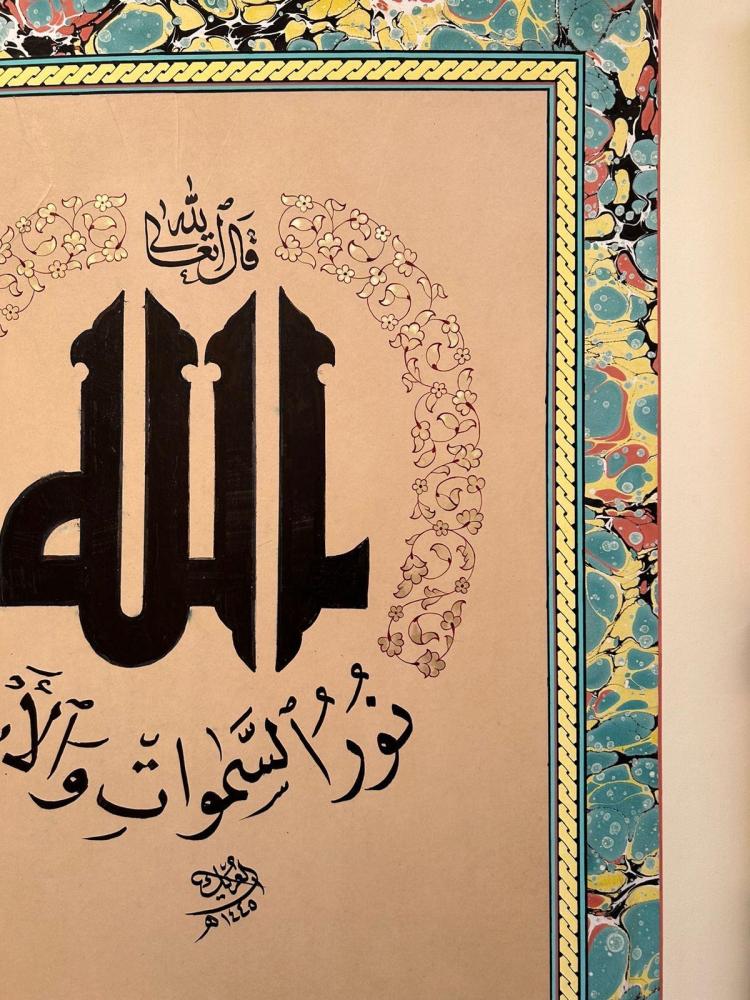 قَالَ اللهُ تَعَالَى
الله
نُورُ السَّمٰوَاتِ وَالْأَ
١٤٤٥هـ